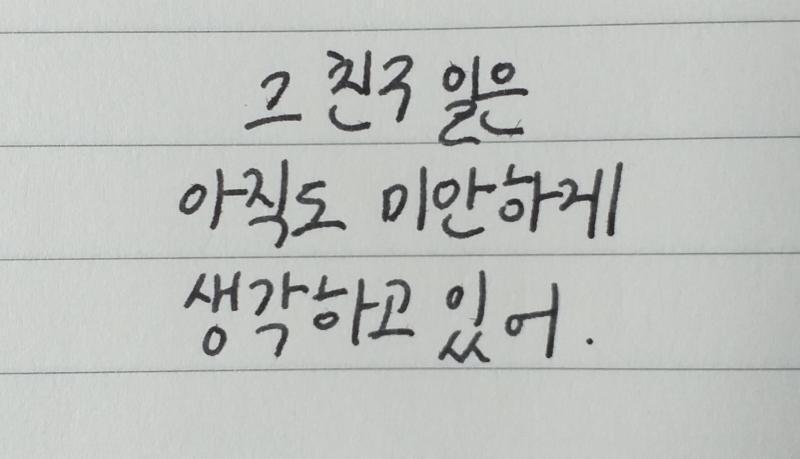 그 친구 일은
아직도 미안하게
생각하고 있어.